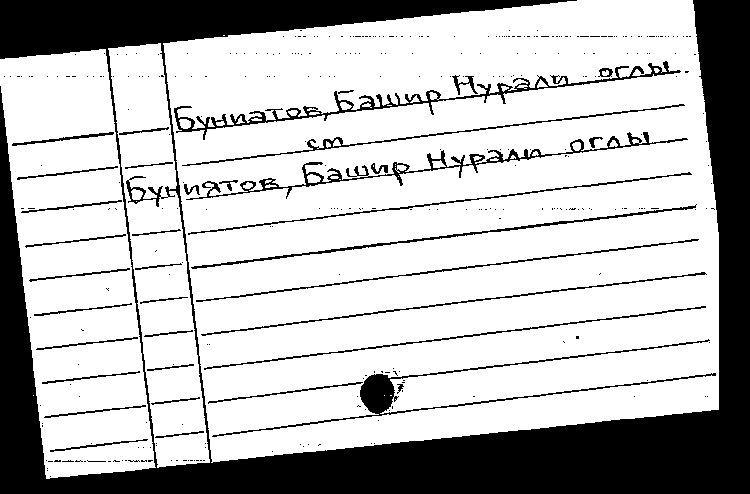 Буниатов, Башир Нурали оглы.
см
Буниятов, Башир Нурали оглы